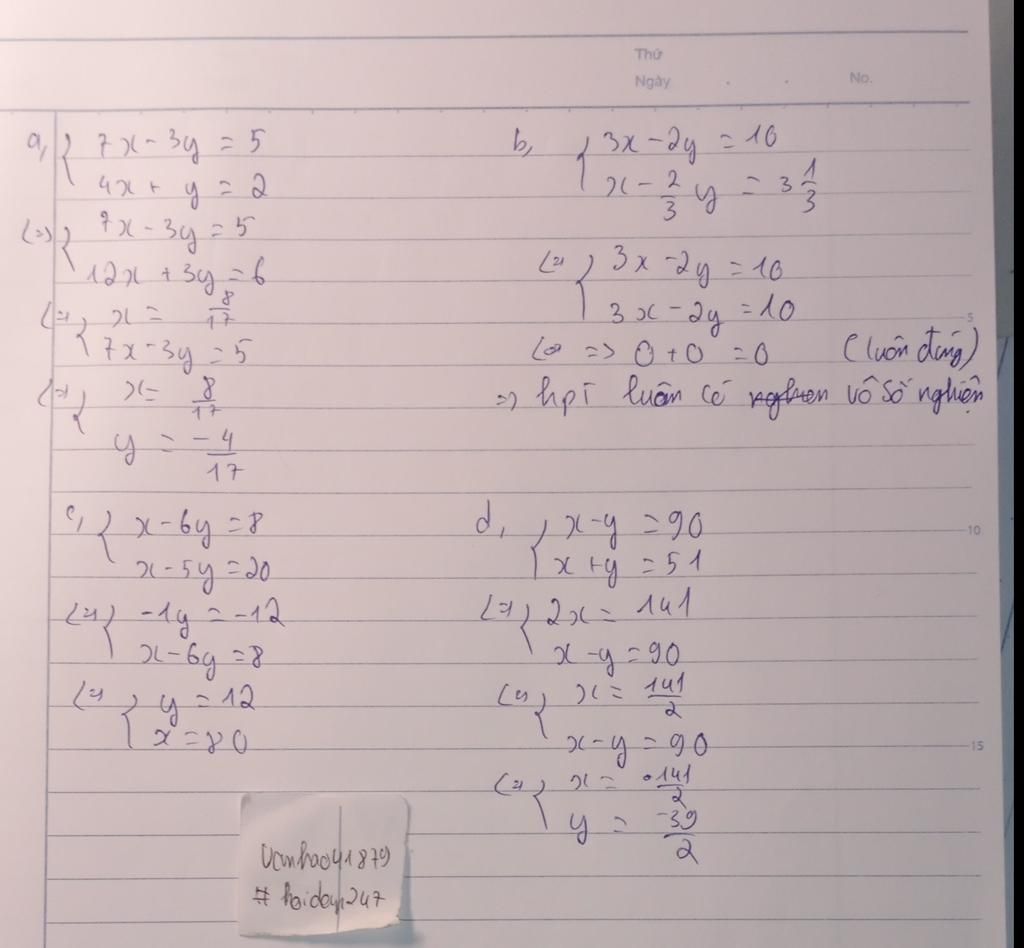 Thứ
Ngày . . No.
a, { 7x - 3y = 5
4x + y = 2
(=) { 7x - 3y = 5
12x + 3y = 6
(=) { x = 8/17
7x - 3y = 5
(=) { x = 8/17
y = -4/17
b, { 3x - 2y = 10
x - 2/3 y = 3 1/3
(=) { 3x - 2y = 10
3x - 2y = 10
=> 0 + 0 = 0 (luôn đúng)
=> hpt luôn có vô số nghiện
c, { x - 6y = 8
x - 5y = 20
(=) { -1y = -12
x - 6y = 8
(=) { y = 12
x = 80
d, { x - y = 90
x + y = 51
(=) { 2x = 141
x - y = 90
(=) { x = 141/2
x - y = 90
(=) { x = 141/2
y = -39/2
5
10
15
Vanhao41879
# hoidap247